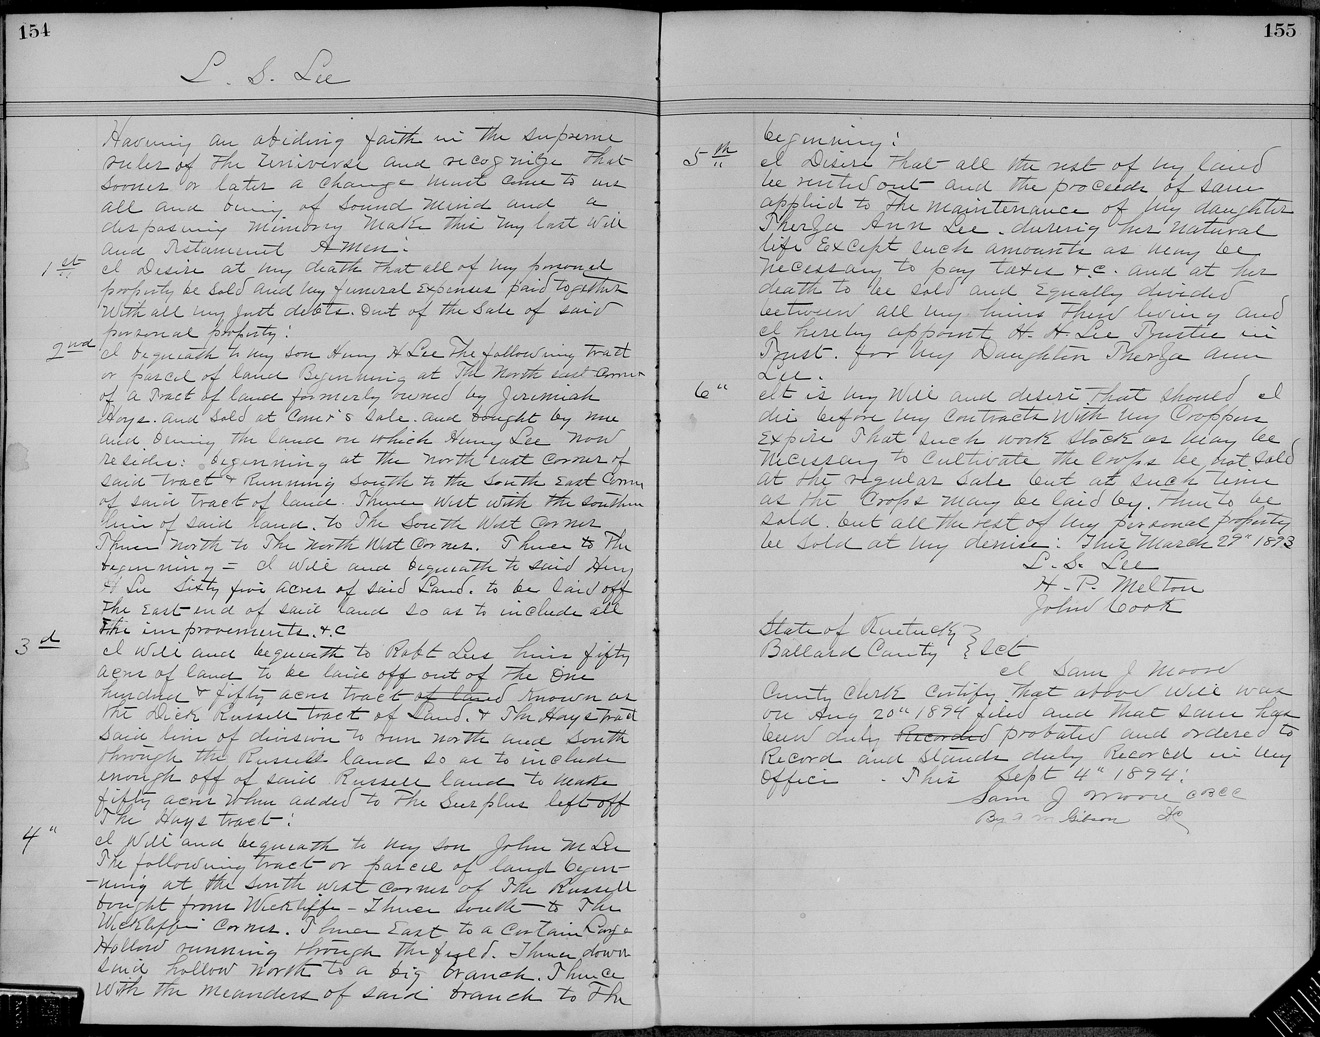 154
L. S. Lee
Having an abiding faith in the supreme
ruler of the Universe and recognize that
sooner or later a change must come to us
all and being of Sound mind and a
disposing memory make this my last will
and Testament Amen:
1st I Desire at my death that all of my personal
property be sold and my funeral Expenses paid together
with all my just debts. Out of the Sale of said
personal property:
2nd I bequeath to my son Henry H Lee The following tract
or parcel of land Beginning at The North east Corner
of a Tract of land formerly owned by Jeremiah
Hays. and Sold at Comr's sale. and bought by me
and being the land on which Henry Lee now
resides: beginning at the north east corner of
said tract & Running South to the South East Corner
of said tract of land. Thence West with the southern
line of said land. to The South West Corner
Thence North to The North West Corner. Thence to The
beginning = I will and bequeath to said Henry
H Lee Sixty five acres of said Land. to be laid off
The East end of said land so as to include all
the improvements. &c
3d I will and bequeath to Robt Lees heirs fifty
acres of land to be laid off out of The One
hundred & fifty acres tract of land known as
the Dick Russell tract of Land. & The Hays tract
said line of division to run north and South
through the Russell land so as to include
enough off of said Russell land to make
fifty acres when added to The Surplus left off
The Hays tract:
4" I Will and bequeath to my son John M Lee
The following tract or parcel of land begin-
-ning at the South west corner of The Russell
bought from Wickliffe - Thence South to The
Wickliffe Corner. Thence East to a certain Large
Hollow running through the field. Thence down
said hollow North to a big branch. Thence
with the meanders of said branch to The
155
beginning:
5th I Desire that all the rest of my land
be rented out and the proceeds of same
applied to The maintenance of my daughter
Therza Ann Lee. during her natural
life Except such amounts as may be
necessary to pay taxes &c. and at her
death to be sold and Equally divided
between all my heirs then living and
I hereby appoint H. H. Lee Trustee in
Trust. for my Daughter Therza ann
Lee.
6" It is my Will and desire That should I
die before my contracts With my Croppers
Expire That such work stock as may be
necessary to cultivate the Crops be not sold
at the regular sale but at such time
as the Crops may be laid by. then to be
sold. but all the rest of my personal property
be sold at my demise: This March 29" 1893
L. S. Lee
H. P. Melton
John Cook
State of Kentucky }
Ballard County } Sct
I Sam J Moore
County Clerk certify that above will was
on Aug 20" 1894 filed and that same has
been duly Recorded probated and ordered to
Record and Stands duly Record in my
Office. This Sept 4" 1894:
Sam J Moore CBCC
By Gibson DC